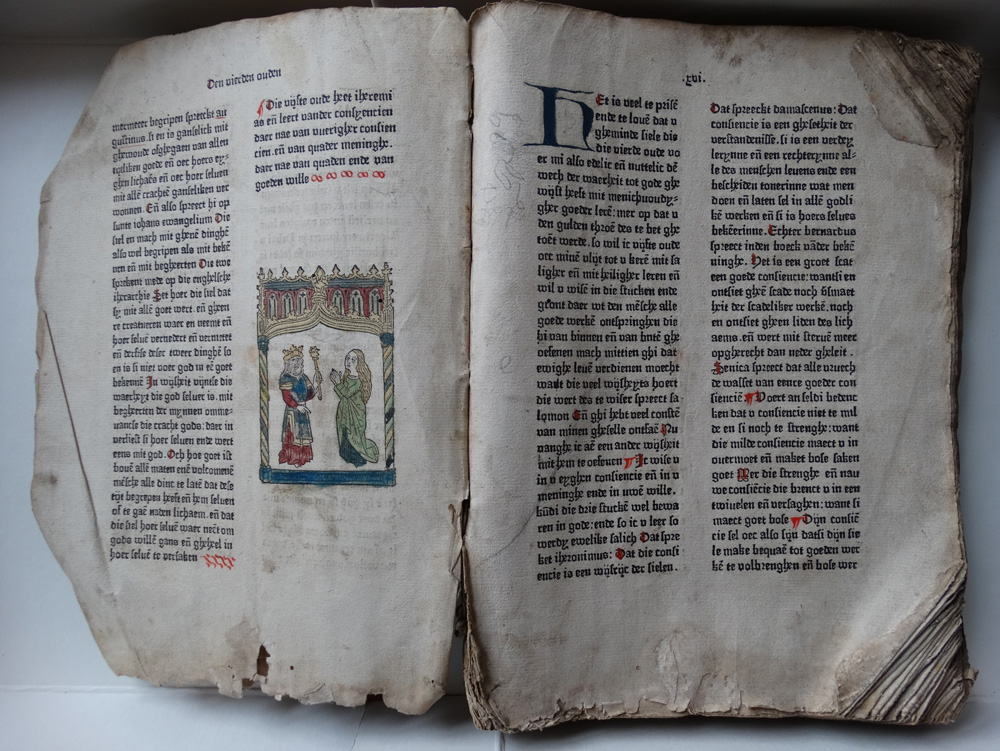 Den vierden ouden
mermeer begripen spreeckt au
gustinus. si en is ganselick mit
ghewoude opghegaen van allen
tijtliken goede eñ oec hoers ey⸗
ghen lichaẽs eñ oec hoers seluen
mit allẽ crachtẽ ganseliken ver
wonnen. Eñ also spreect hi op
sunte iohans ewangelium Die
siel en mach mit ghenẽ dinghẽ
also wel begripen als mit bekẽ
nen eñ mit begheerten Die twe
sprekent mede op die enghelsche
iherarchie Set hoer die siel dat
sy mit alle goet wert. eñ gheen
re creatueren waer en neemt eñ
hoer seluẽ vernedert eñ vermeet
eñ derfste deser tweer dinghẽ so
en is si niet voer god in eẽ goet
bekennẽ In wijsheit vijntse die
waerheyt die god seluer is. mit
begheerten der mynnen omme⸗
vancse die cracht gods: daer in
verliest si hoer seluen ende wert
eens mit god. Och hoe goet ist
bouẽ allẽ maten enẽ volcomenẽ
mẽsche alle dinc te latẽ dat dese
tijt begrepen heeft eñ hem seluen
of te gaẽ naden lichaem. eñ dat
die siel hoer seluẽ waer neẽt om
gods willẽ gans eñ gheheel in
hoer seluẽ te versaken
Die vijfte oude heet iheremi
as eñ leert vander consyencien
daer nae van vuerigher consien
cien. eñ van quader meninghe.
daer nae van quaden ende van
goeden wille
.xvi.
HEt is veel te prisẽ
ende te louẽ dat v
gheminde siele dis
die vierde oude vo
er mi also edelic eñ nuttelic dẽ
wech der waerheit tot gode ghe
wijst heeft mit menichuoudy⸗
gher goeder leer: mer op dat v
den gulden throẽ des te bet ghe
toẽt werde. so wil ic vijfte oude
oec minẽ vlijt tot v kerẽ mit sa
ligher eñ mit heiligher leren eñ
wil v wisẽ in die stucken ende
gront daer wt den mẽsche alle
goede werkẽ ontspringhen die
hi van binnen eñ van butẽ ghe
oefenen mach mittien ghi dat
ewighe leuẽ verdienen moecht
want die veel wijsheyts hoert
die wert des te wiser spreect sa
lomon Eñ ghi hebt veel constẽ
van minen gheselle ontfaẽ Nu
vanghe ic aẽ een ander wijsheit
mit hem te oefenen Ic wise v
in v eyghen consiencie eñ in v
meninghe ende in uwẽ wille.
kũdi die drie stuckẽ wel bewa
ren in gode: ende so ic v leer so
werdy ewelike salich Dat spre
ket iheronimus: Dat die consi
encie is een wijsrijc der sielen.
Dat spreeckt damascenus: Dat
consiencie is een ghesetheit der
verstandenisse. si is een verdey
lerynne eñ een rechterynne al⸗
le des menschen leuens ende een
bescheiden tonerinne wat men
doen eñ laten sel in allẽ godli
kẽ wercken eñ si is hoers selues
bekẽerinne. Echter bernardus
spreect inden boeck vãder bekẽ
ninghe. Het is een groet scat
een goede consiencie: want si en
ontsiet ghẽẽ scade noch v̈smaet
heit der scadeliker werckẽ. noch
en ontsiet gheen liden des lich
aems. eñ wert mit steruẽ meer
opgherecht dan neder gheleit.
Senica spreect dat alle vruech
de wasset van eenre goeder con
siencien Voert an seldi beden̄c
ken dat v consiencie niet te mil
de en si noch te strenghe: want
die milde consiencie maect v in
ouermoet eñ maket bose saken
goet Mer die strenghe eñ nau
we consiẽcie die brenct v in een
twiuelen eñ versaghen: want si
maect goet bose Dijn consiẽ
cie sel oec also sijn datsi dijn sie
le make bequaẽ tot goeden wer
kẽ te volbrenghen eñ bose wer